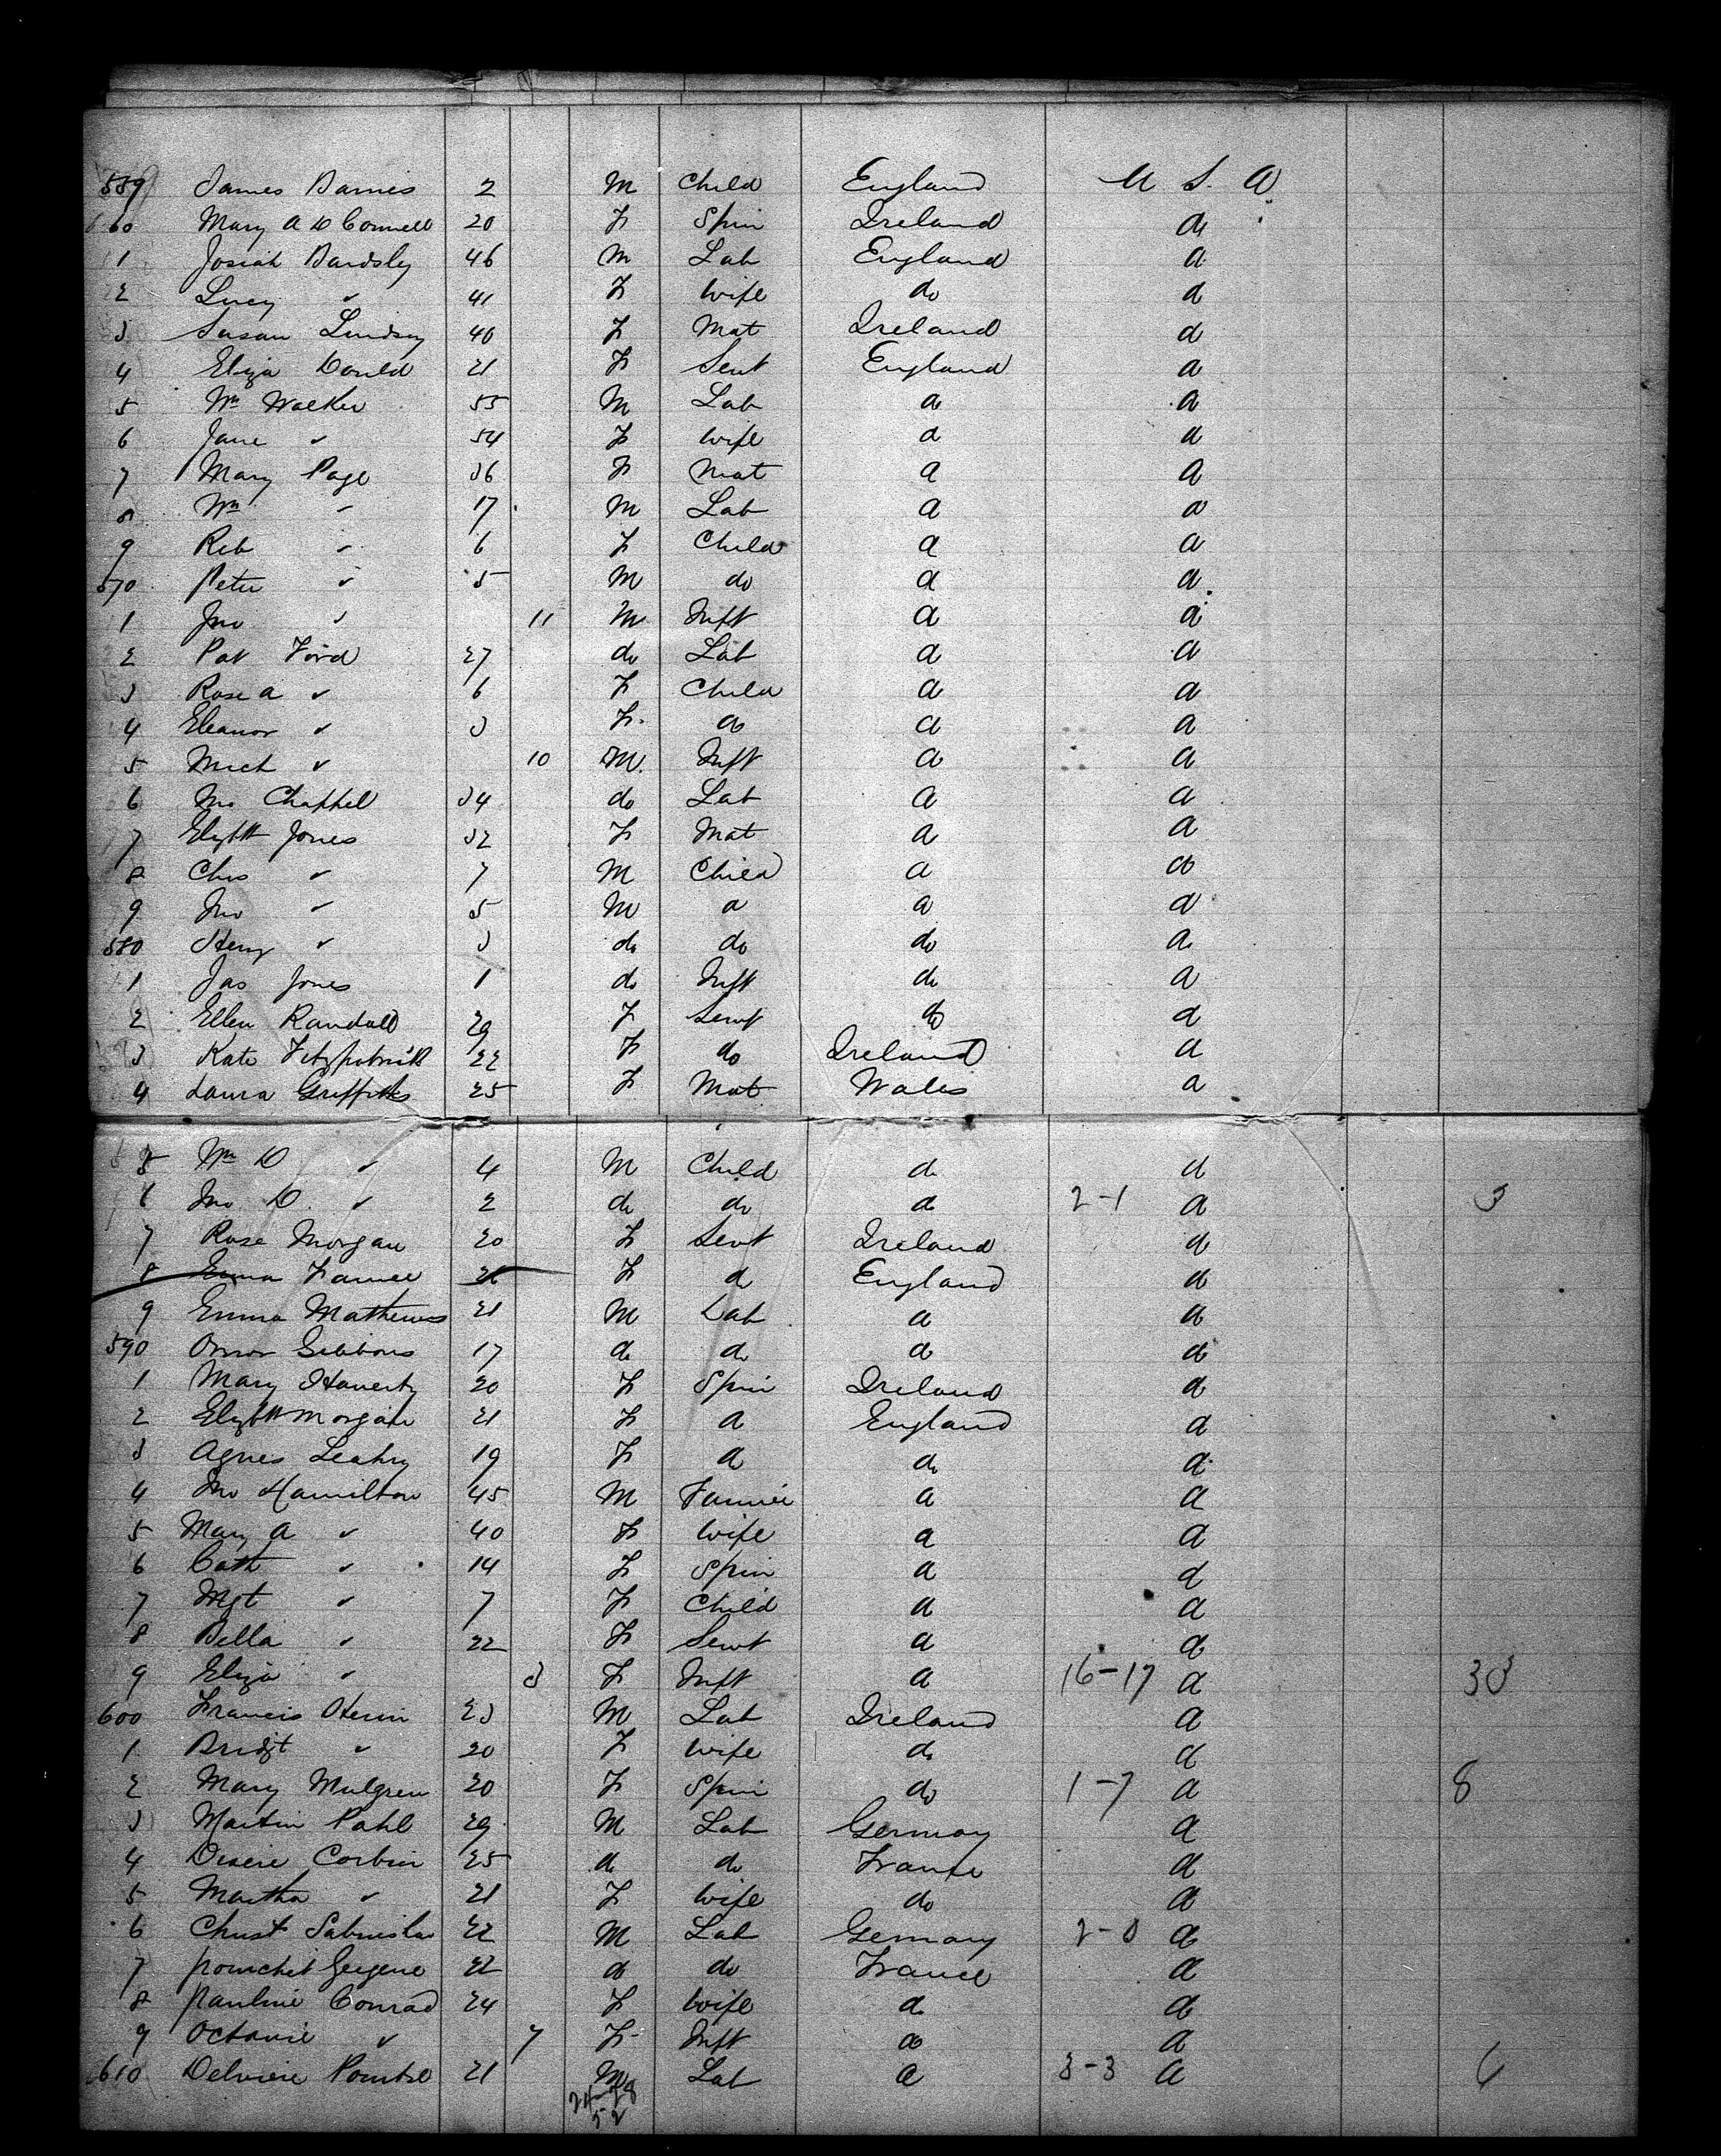 559 James Barnes 2 M Child England U S A
60 Mary A O Connell 20 F Spin Ireland do
1 Josiah Bardsley 46 M Lab England do
2 Lucy " 41 F Wife do do
3 Susan Lindsay 40 F Mat Ireland do
4 Eliza Dould 21 F Servt England do
5 Wm Walker 55 M Lab do do
6 Jane " 54 F Wife do do
7 Mary Page 36 F Mat do do
8 Wm " 17 M Lab do do
9 Reb " 6 F Child do do
570 Peter " 5 M do do do
1 Jno " 11 M Inft do do
2 Pat Ford 27 do Lab do do
3 Rose A " 6 F Child do do
4 Eleanor " 3 F do do do
5 Mich " 10 M Inft do do
6 Jno Chappel 34 do Lab do do
7 Elizbth Jones 32 F Mat do do
8 Chas " 7 M Child do do
9 Jno " 5 M do do do
580 Henry " 3 do do do do
1 Jas Jones 1 do Inft do do
2 Ellen Randall 29 F Servt do do
3 Kate Fitzpatrick 22 F do Ireland do
4 Laura Griffiths 25 F Mat Wales do
5 Wm D " 4 M Child do do
6 Jno D " 2 do do do 2-1 do 3
7 Rose Morgan 20 F Servt Ireland do
8 Emma F do England do
9 Emma Mathews 21 M Lab do do
590 Gibbons 17 do do do do
1 Mary Haverty 20 F Spin Ireland do
2 Elizbth Morgan 21 F do England do
3 Agnes Leahy 19 F do do do
4 Jno Hamilton 45 M Farmer do do
5 Mary A " 40 F Wife do do
6 Cath " 14 F Spin do do
7 Mgt " 7 F Child do do
8 Bella " 22 F Servt do do
9 Eliza " 3 F Inft do 16-17 do 33
600 Francis 23 M Lab Ireland do
1 Bridgt " 20 F Wife do do
2 Mary Mulgrew 20 F Spin do 1-7 do 8
3 Martin Pahl 29 M Lab Germany do
4 Desire Corbin 25 do do France do
5 Martha " 21 F Wife do do
6 Christ 22 M Lab Germany 2-0 do
7 22 do do France do
8 Pauline Conrad 24 F Wife do do
9 Octavie " 7 F Inft do do
610 21 M Lab do 3-3 do 6
24-28
52